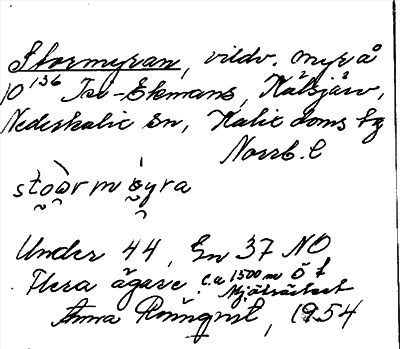 Stormyran, vildv. myr å
10¹³⁶ Ise-Ekmans, Kälsjärv,
Nederkalix sn, Kalix doms tg
Norrb. l
Under 44, En 37 NO
Flera ägare. c.a 1500 m Ö f
Mjöträsket
Anna Rönnqvist, 1954